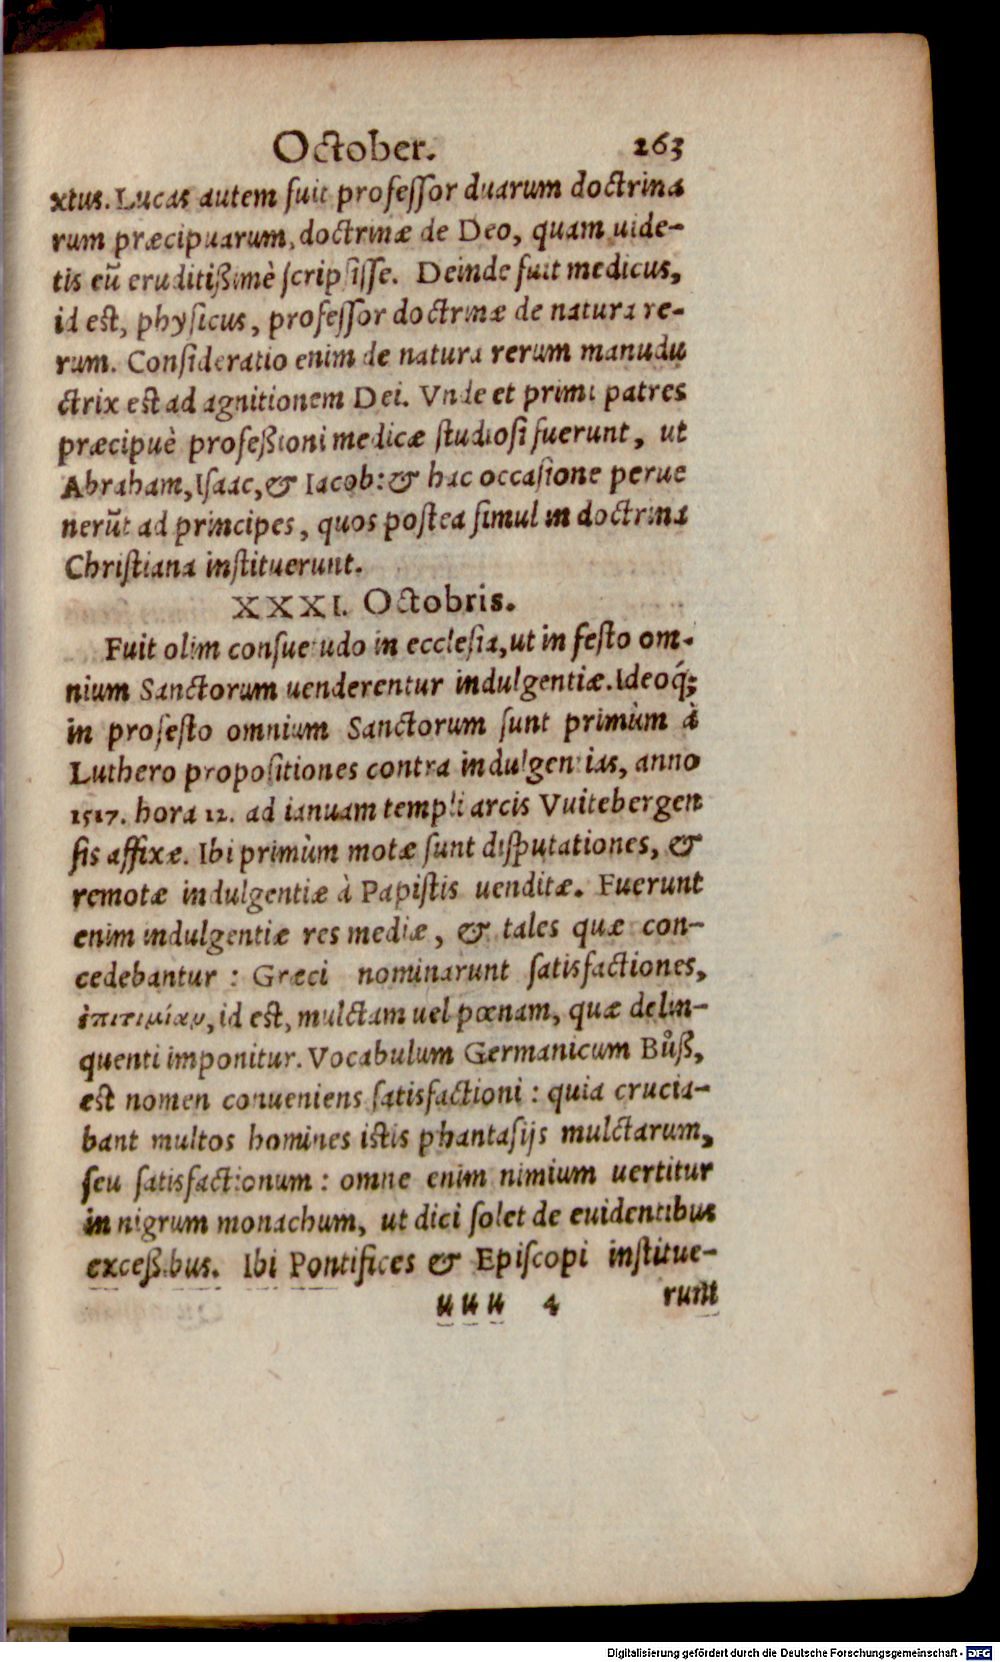 October. 263
xtus. Lucas autem fuit professor duarum doctrina
rum præcipuarum, doctrinæ de Deo, quam uide-
tis eũ eruditißimè scripsisse. Deinde fuit medicus,
id est, physicus, professor doctrinæ de natura re-
rum. Consideratio enim de natura rerum manudu
ctrix est ad agnitionem Dei. Vnde et primi patres
præcipuè profeßioni medicæ studiosi fuerunt, ut
Abraham, Isaac, & Iacob: & hac occasione perue
nerũt ad principes, quos postea simul in doctrina
Christiana instituerunt.
XXXI. Octobris.
Fuit olim consuetudo in ecclesia, ut in festo om-
nium Sanctorum uenderentur indulgentiæ. Ideoq́;
in profesto omnium Sanctorum sunt primùm à
Luthero propositiones contra indulgentias, anno
1517. hora 12. ad ianuam templi arcis Vuitebergen
sis affixæ. Ibi primùm motæ sunt disputationes, &
remotæ indulgentiæ à Papistis uenditæ. Fuerunt
enim indulgentiæ res mediæ, & tales quæ con-
cedebantur: Græci nominarunt satisfactiones,
ἐπιτιμίαν, id est, mulctam uel pœnam, quæ delin-
quenti imponitur. Vocabulum Germanicum Bůß,
est nomen conueniens satisfactioni: quia crucia-
bant multos homines istis phantasijs mulctarum,
seu satisfactionum: omne enim nimium uertitur
in nigrum monachum, ut dici solet de euidentibus
exceßibus. Ibi Pontifices & Episcopi institue-
uuu 4 runt
Digitalisierung gefördert durch die Deutsche Forschungsgemeinschaft - DFG